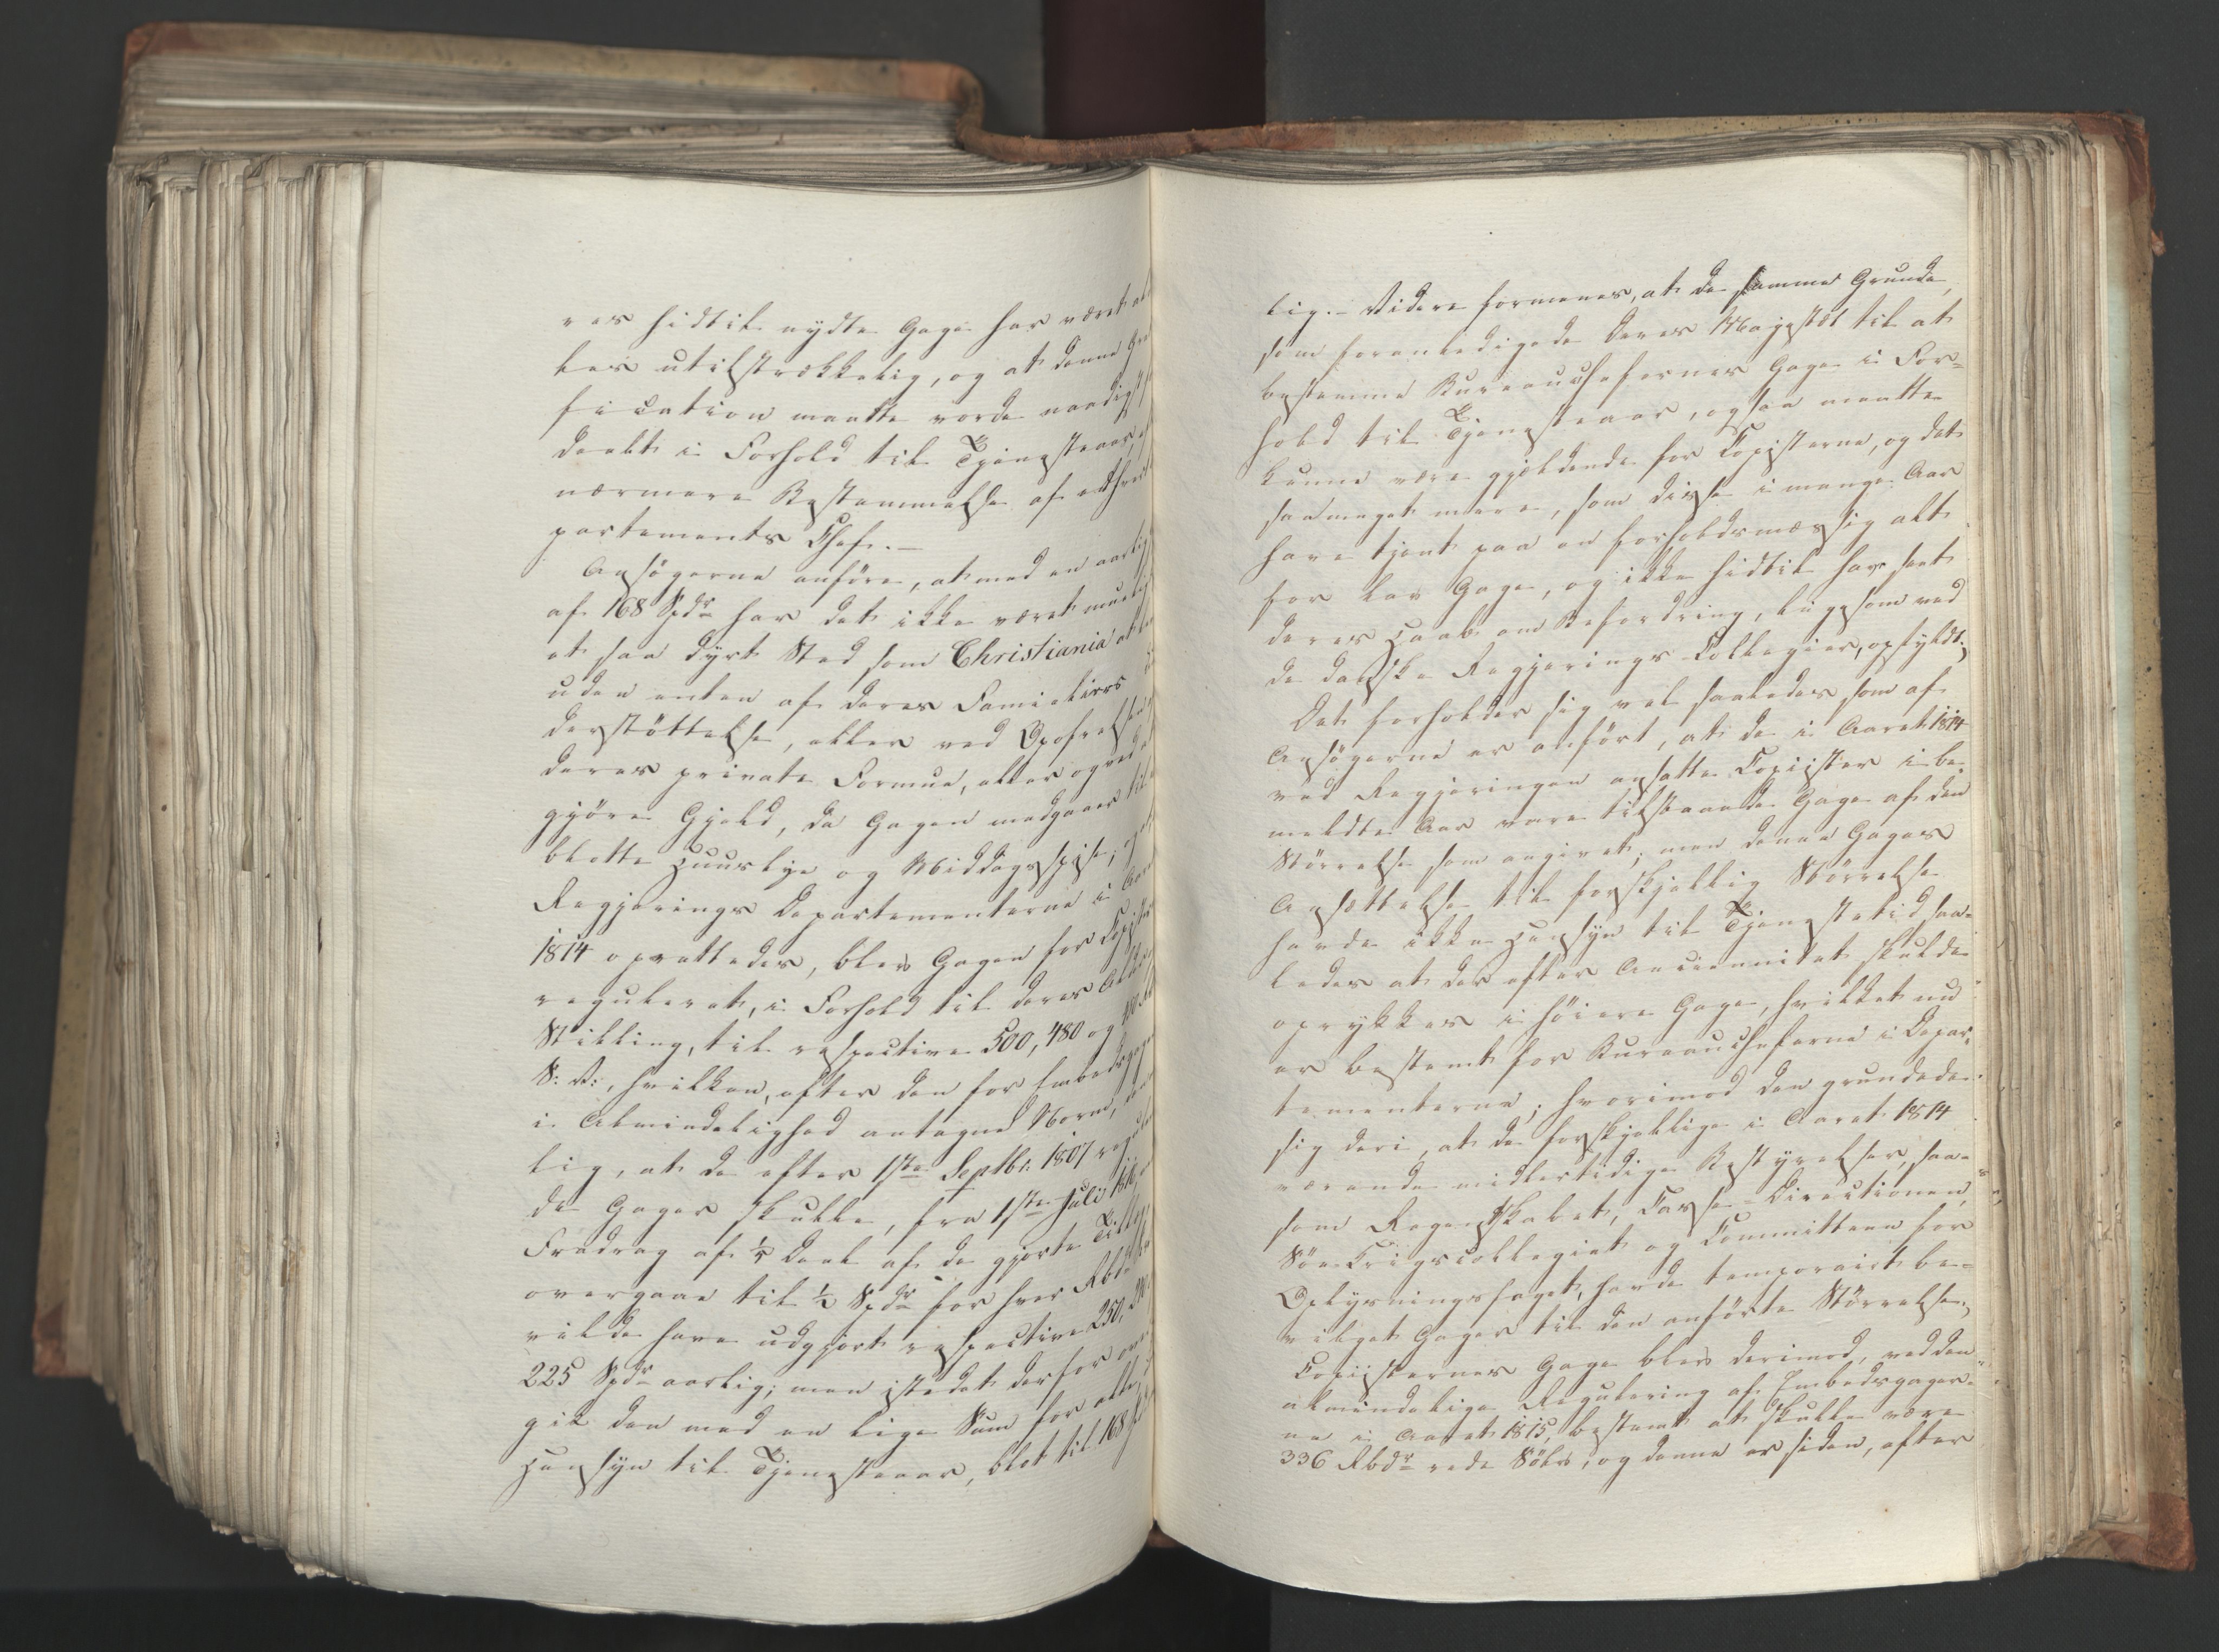 res hidtil nydte Gage har været al
les utilstrækkelig, og at denne Gra
fication maatte vorde naadigst
deelt i Forhold til Tjenesteaar, ef
nærmere Bestemmelse af ethvert
partements Chef. —
Ansøgerne anføre, at med en aarlig
af 168 Spdr har det ikke været mueligt
et saa dyrt Sted som Christiania at
uden enten af deres Familiers
derstøttelse, eller ved Opofrelse
deres private Formue, eller og ved at
gjøre Gjeld, da Gagen medgaaer til
blotte Huuslye og Middagsspise; 
Regjerings Departementerne i Aaret
1814 oprettedes, blev Gagen for Copister
reguleret, i Forhold til deres
Stilling, til respective 500, 480 og
S: V:, hvilken, efter den for Embedsgager
i Almindelighed antagne Norm,
lig, at de efter 1ste Septbr 1807
de Gager skulle, fra 1ste Juli
Fradrag af 1/5 Deel af de gjorte Tillæg,
overgaae til 1/2 Spdr for hver Rbdr
vilde have udgjort respective 250,
225 Spdr aarlig; men istedet derfor
gik den med en lige Sum for alle,
Hensyn til Tjenesteaar, blot til 168
lig. — Videre formenes, at de samme Grunde,
som foranledigede Deres Majestæt til at
bestemme Bureauchefernes Gage i For=
hold til Tjenesteaar, ogsaa maatte
kunne være gjeldende for Copisterne, og det
saameget mere, som disse i mange Aar
have tjent paa en forholdsmæssig alt
for lav Gage, og ikke hidtil have seet
deres Haab om Befordring, ligesom ved
de danske Regjerings Collegier, opfyldt.
Det forholder sig vel saaledes, som af
Ansøgerne er anført, at de i Aaret 1814
ved Regjeringen ansatte Copiister i be=
meldte Aar vare tilstaaede Gage af den
Størrelse, som angivet; men denne Gages
Ansættelse til forskjellig Størrelse
havde ikke Hensyn til Tjenestetid saa=
ledes at der efter Anciennitet skulde
oprykkes i høiere Gage, hvilket nu
er bestemt for Bureaucheferne i Depar=
tementerne; hvorimod den grundede
sig deri, at de forskjellige i Aaret 1814
værende midlertidige Bestyrelser, saa=
som Regentskabet, Casse=Directionen,
Søe-Krigscollegiet og Committeen for
Oplysningsfaget, havde temporairt be=
vilget Gager til den anførte Størrelse.
Copiisternes Gage blev derimod, ved den
almindelige Regulering af Embedsgager=
ne i Aaret 1815, bestemt at skulle være
336 Rbdr rede Sølv, og denne er siden, efter